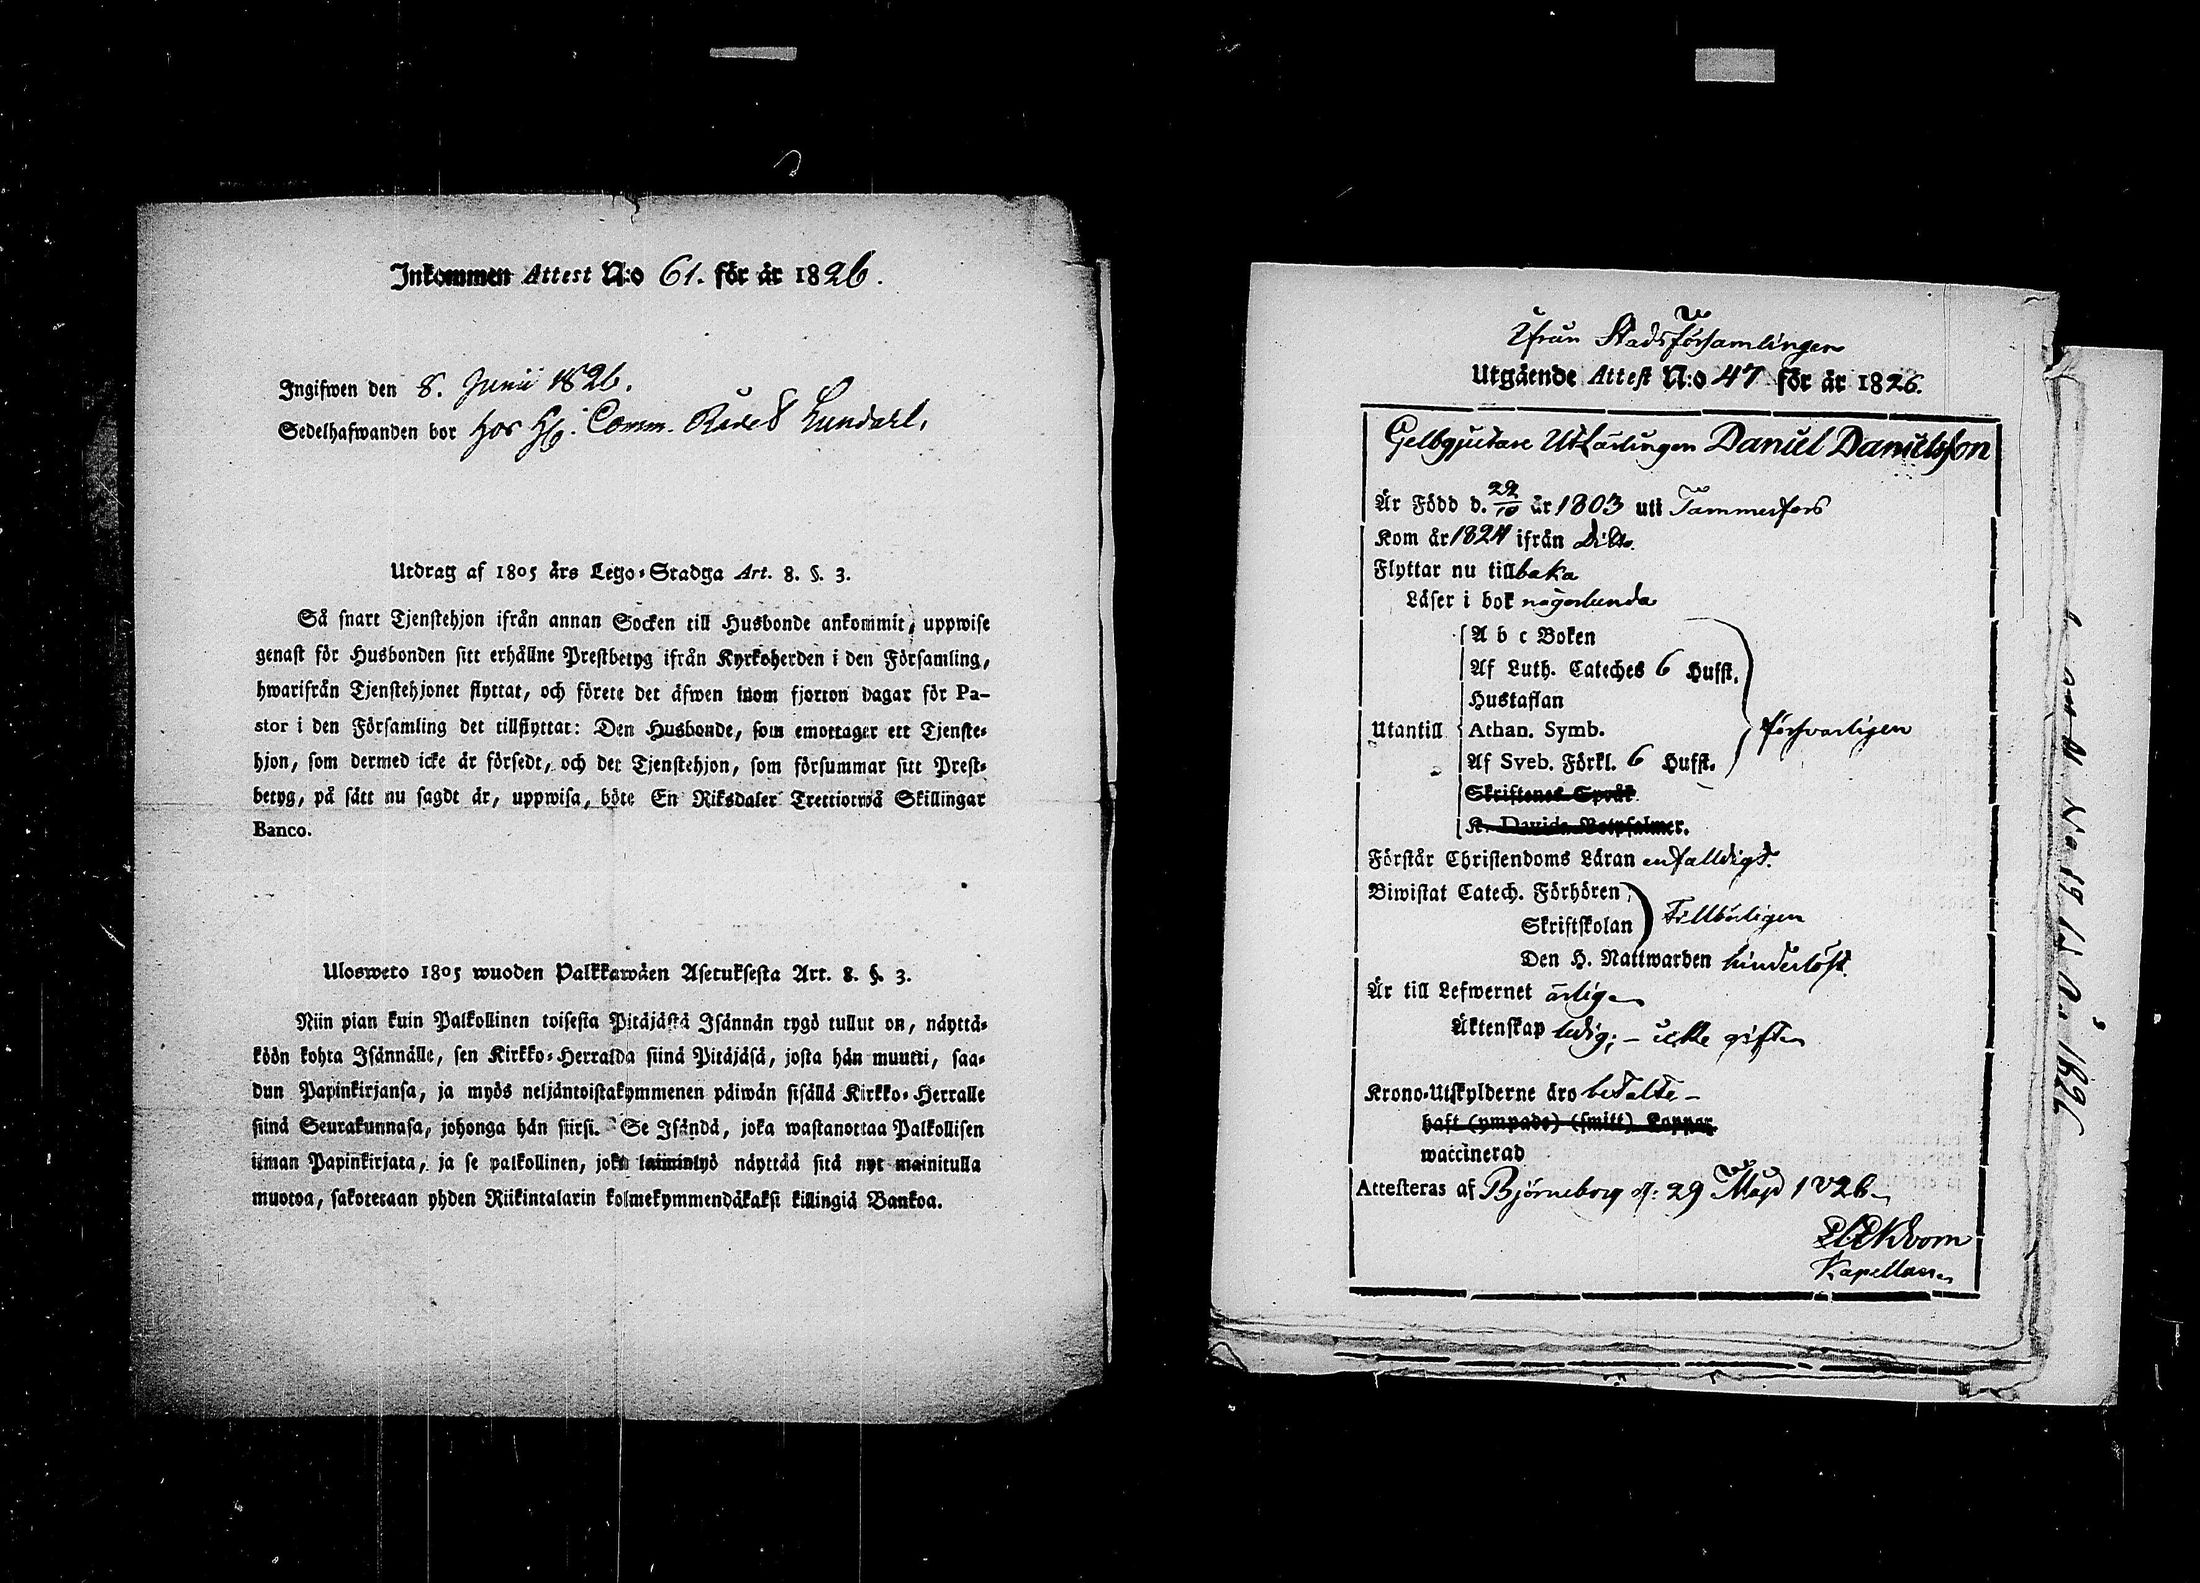 Inkommen Attest N:o 61. för år 1826.
Ingifwen den 8. Junii 1826.
Sedelhafwanden bor hos H. Comm. Rådet Lundahl,
Utdrag af 1805 års Lego-Stadga Art. 8. §. 3.
Så snart Tjenstehjon ifrån annan Socken till Husbonde ankommit, uppwise
genast för Husbonden sitt erhållne Prestbetyg ifrån Kyrkoherden i den Församling,
hwarifrån Tjenstehjonet flyttat, och förete det äfwen inom fjorton dagar för Pa-
stor i den Församling det tillflyttat: Den Husbonde, som emottager ett Tjenste-
hjon, som dermed icke är försedt, och det Tjenstehjon, som försummar sitt Prest-
betyg, på sätt nu sagdt är, uppwisa, böte En Riksdaler Trettiotwå Skillingar
Banco.
Ulosweto 1805 wuoden Palkkawäen Asetuksesta Art. 8. §. 3.
Niin pian kuin Palkollinen toisesta Pitäjästä Isännän tygö tullut on, näyttä-
köön kohta Isännälle, sen Kirkko-Herralda siinä Pitäjäsä, josta hän muutti, saa-
dun Papinkirjansa, ja myös neljäntoistakymmenen päiwän sisällä Kirkko-Herralle
siinä Seurakunnasa, johonga hän siirsi. Se Isändä, joka wastanottaa Palkollisen
ilman Papinkirjata, ja se palkollinen, joka laiminlyö näyttää sitä nyt mainitulla
muotoa, sakotetaan yhden Riikintalarin kolmekymmendäkaksi killingiä Bankoa.
Ifrån Stadsförsamlingen
Utgående Attest N:o 47 för år 1826.
Gelbgjutare Utlärlingen Daniel Danielsson
Är Född d. 22/10 år 1803 uti Tammerfors
Kom år 1824 ifrån Ditto.
Flyttar nu tillbaka
Läser i bok någorlunda
A b c Boken
Af Luth. Cateches 6 Hufst.
Hustaflan
Utantill Athan. Symb. försvarligen
Af Sveb. Förkl. 6 Hufst.
Skriftenes Språk
K. Davids Botpsalmer.
Förstår Christendoms Läran enfalldigt.
Biwistat Catech. Förhören
Skriftskolan Tillbörligen
Den H. Nattwarden hinderlöst.
Är till Lefwernet ärlig
Äktenskap ledig; – icke gift
Krono-Utskylderne äro betalte –
haft (ympade) (smitt) Koppor.
waccinerad
Attesteras af Björneborg d: 29 Maji 1826
Ekbom
Kapellan
N:o 19 1826